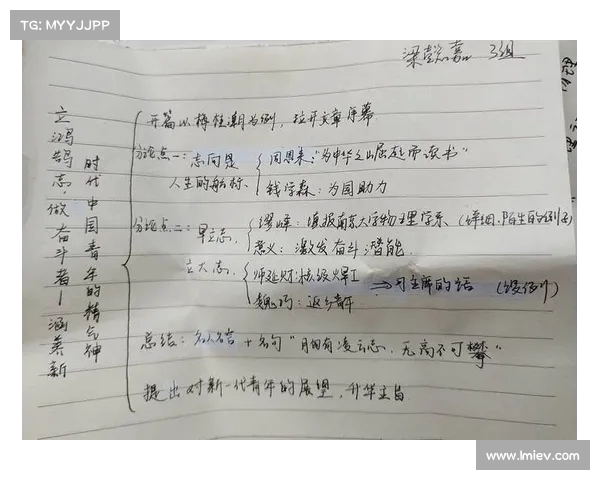 TG: MYYJJPP
梁懿嘉 3组
立鸿鹄志,做奋斗者—涵养新
时代中国青年的精气神
开篇以梅桂潮为例,拉开文章序幕
分论点一:志向是
人生的航标.
周恩来:"为中华之崛起而读书"
钱学森:为国助力
分论点二:早立志,
缪峰:填报南京大学物理学系 (详细、陌生的例子)
意义:激发奋斗潜能.
立大志,
师延财:核级焊工
魏巧:返乡青年
⇒习主席的话 (设例)
总结:名人名言+名句"自有凌云志,无高不可攀"
提出对新一代青年的展望,升华主旨.
www.lmiev.com